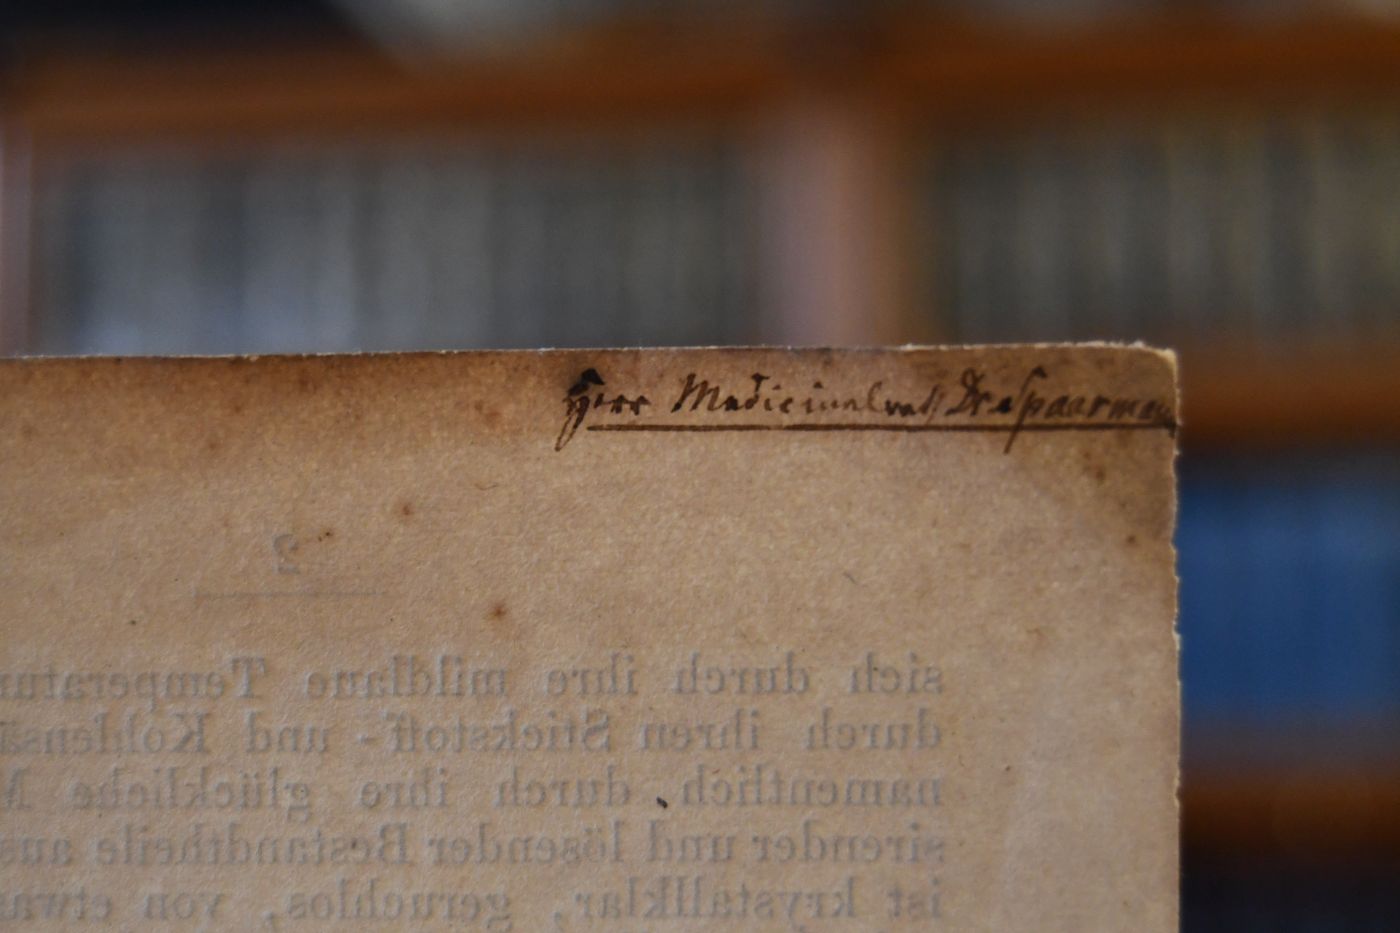 Herr Medicinalrath Dr. Spaarmann
2
sich durch ihre mildlaue Temperatur
durch ihren Stickstoff- und Kohlensä
namentlich durch ihre glückliche M
sirender und lösender Bestandtheile aus
ist krystallklar, geruchlos, von etwas